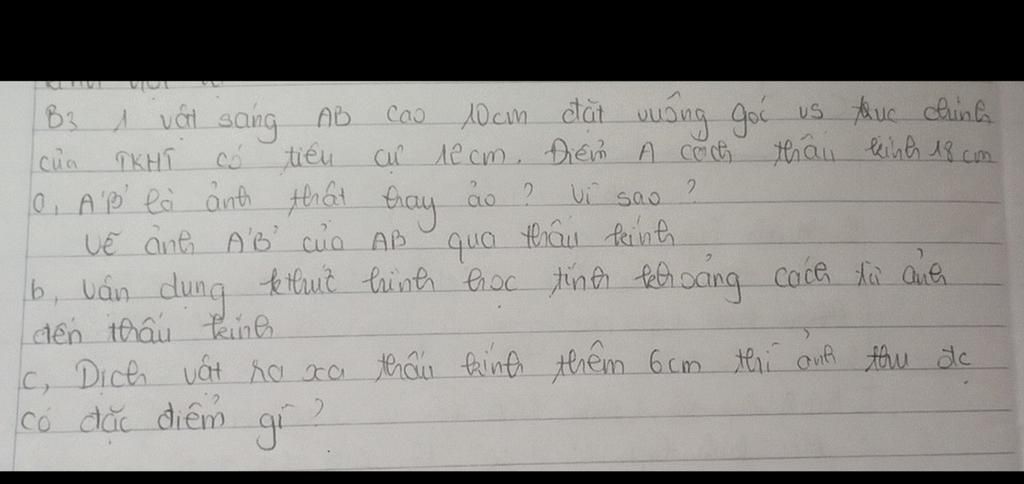 B3 1 vật sáng AB cao 10cm đặt vuông góc vs trục chính
của TKHT có tiêu cự 12cm. Điểm A cách thấu kính 18cm
a, A'B' là ảnh thật hay ảo? Vì sao?
Vẽ ảnh A'B' của AB qua thấu kính
b, Vận dụng kthuc hình học tính khoảng cách từ ảnh
đến thấu kính
c, Dịch vật ra xa thấu kính thêm 6cm thì ảnh thu đc
có đặc điểm gì?